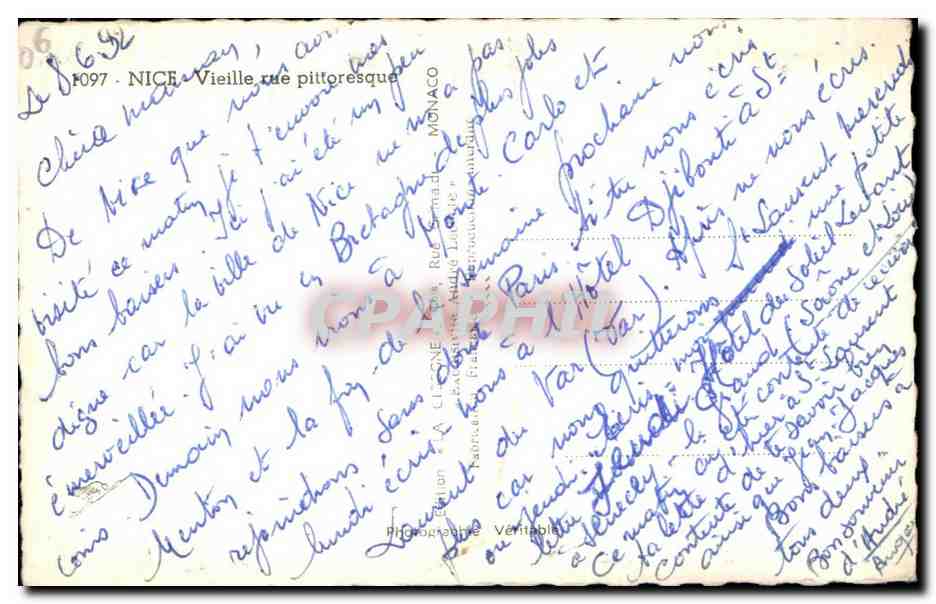 06
Le 8.6.52
1097 - NICE - Vieille rue pittoresque
Chère maman,
De Nice que nous avons
visité ce matin, je t'envoie mes
bons baisers. Ici j'ai été un peu
déçue car la ville de Nice ne m'a pas
émerveillée. J'ai vu en Bretagne de plus jolis
coins. Demain nous irons à Monte Carlo et
Menton et la fin de la semaine prochaine nous
rejoindrons sans doute Paris. Si tu nous écris
lundi écris nous à l'Hôtel Djibouti à St
Laurent du Var (Var). Après ne nous écris
pas car nous quitterons St Laurent mercredi
ou jeudi. Ecris moi une petite
lettre Hôtel du Soleil Levant
à Sennecey le Grand (Saône et Loire)
Ce matin ai été contente de recevoir
ta lettre d'hier à St Laurent
contente de te savoir bien
ainsi que Jean Jacques
Bons baisers à
tous deux
Bonjour
d'André
Edition « LA CIGOGNE »
MONACO
Fabrication
Photographie Véritable
CPAPHIL